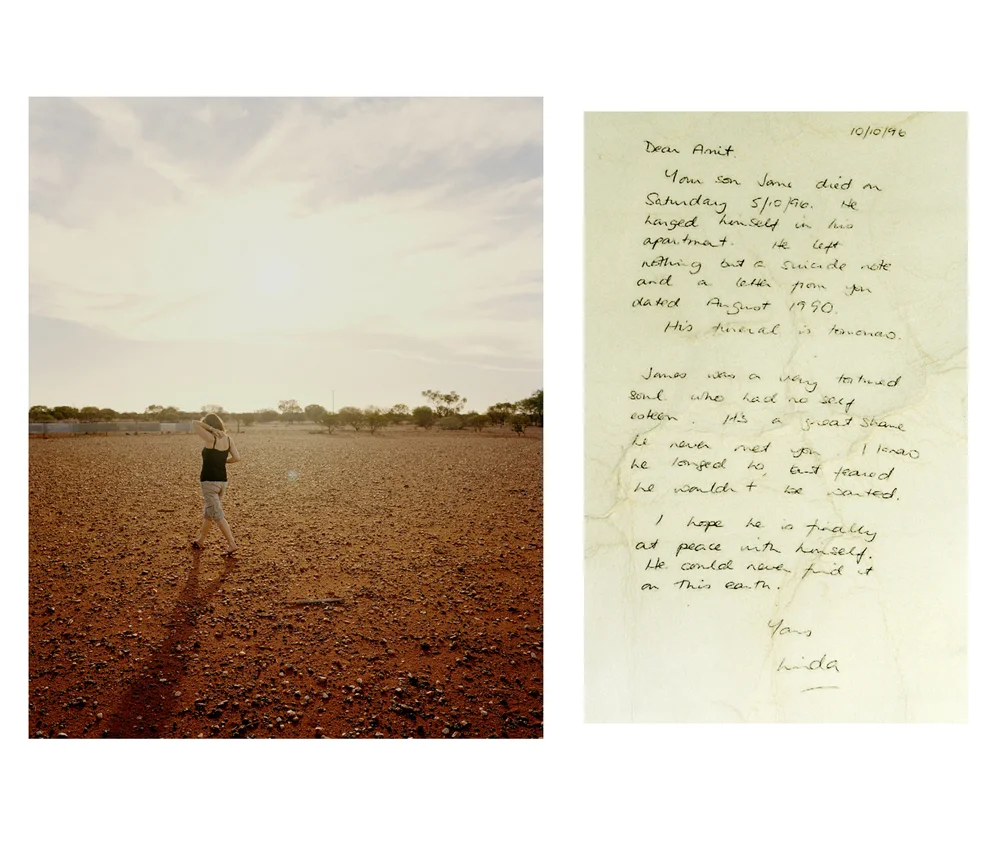 10/10/96
Dear Anit.
Your son Jame died on
Saturday 5/10/96. He
hanged himself in his
apartment. He left
nothing but a suicide note
and a letter from you
dated August 1990.
His funeral is tomorrow.
James was a very tortured
soul who had no self
esteem. It's a great shame
he never met you I know
he longed to, but feared
he wouldn't be wanted.
I hope he is finally
at peace with himself.
He could never find it
on this earth.
Yours
Linda